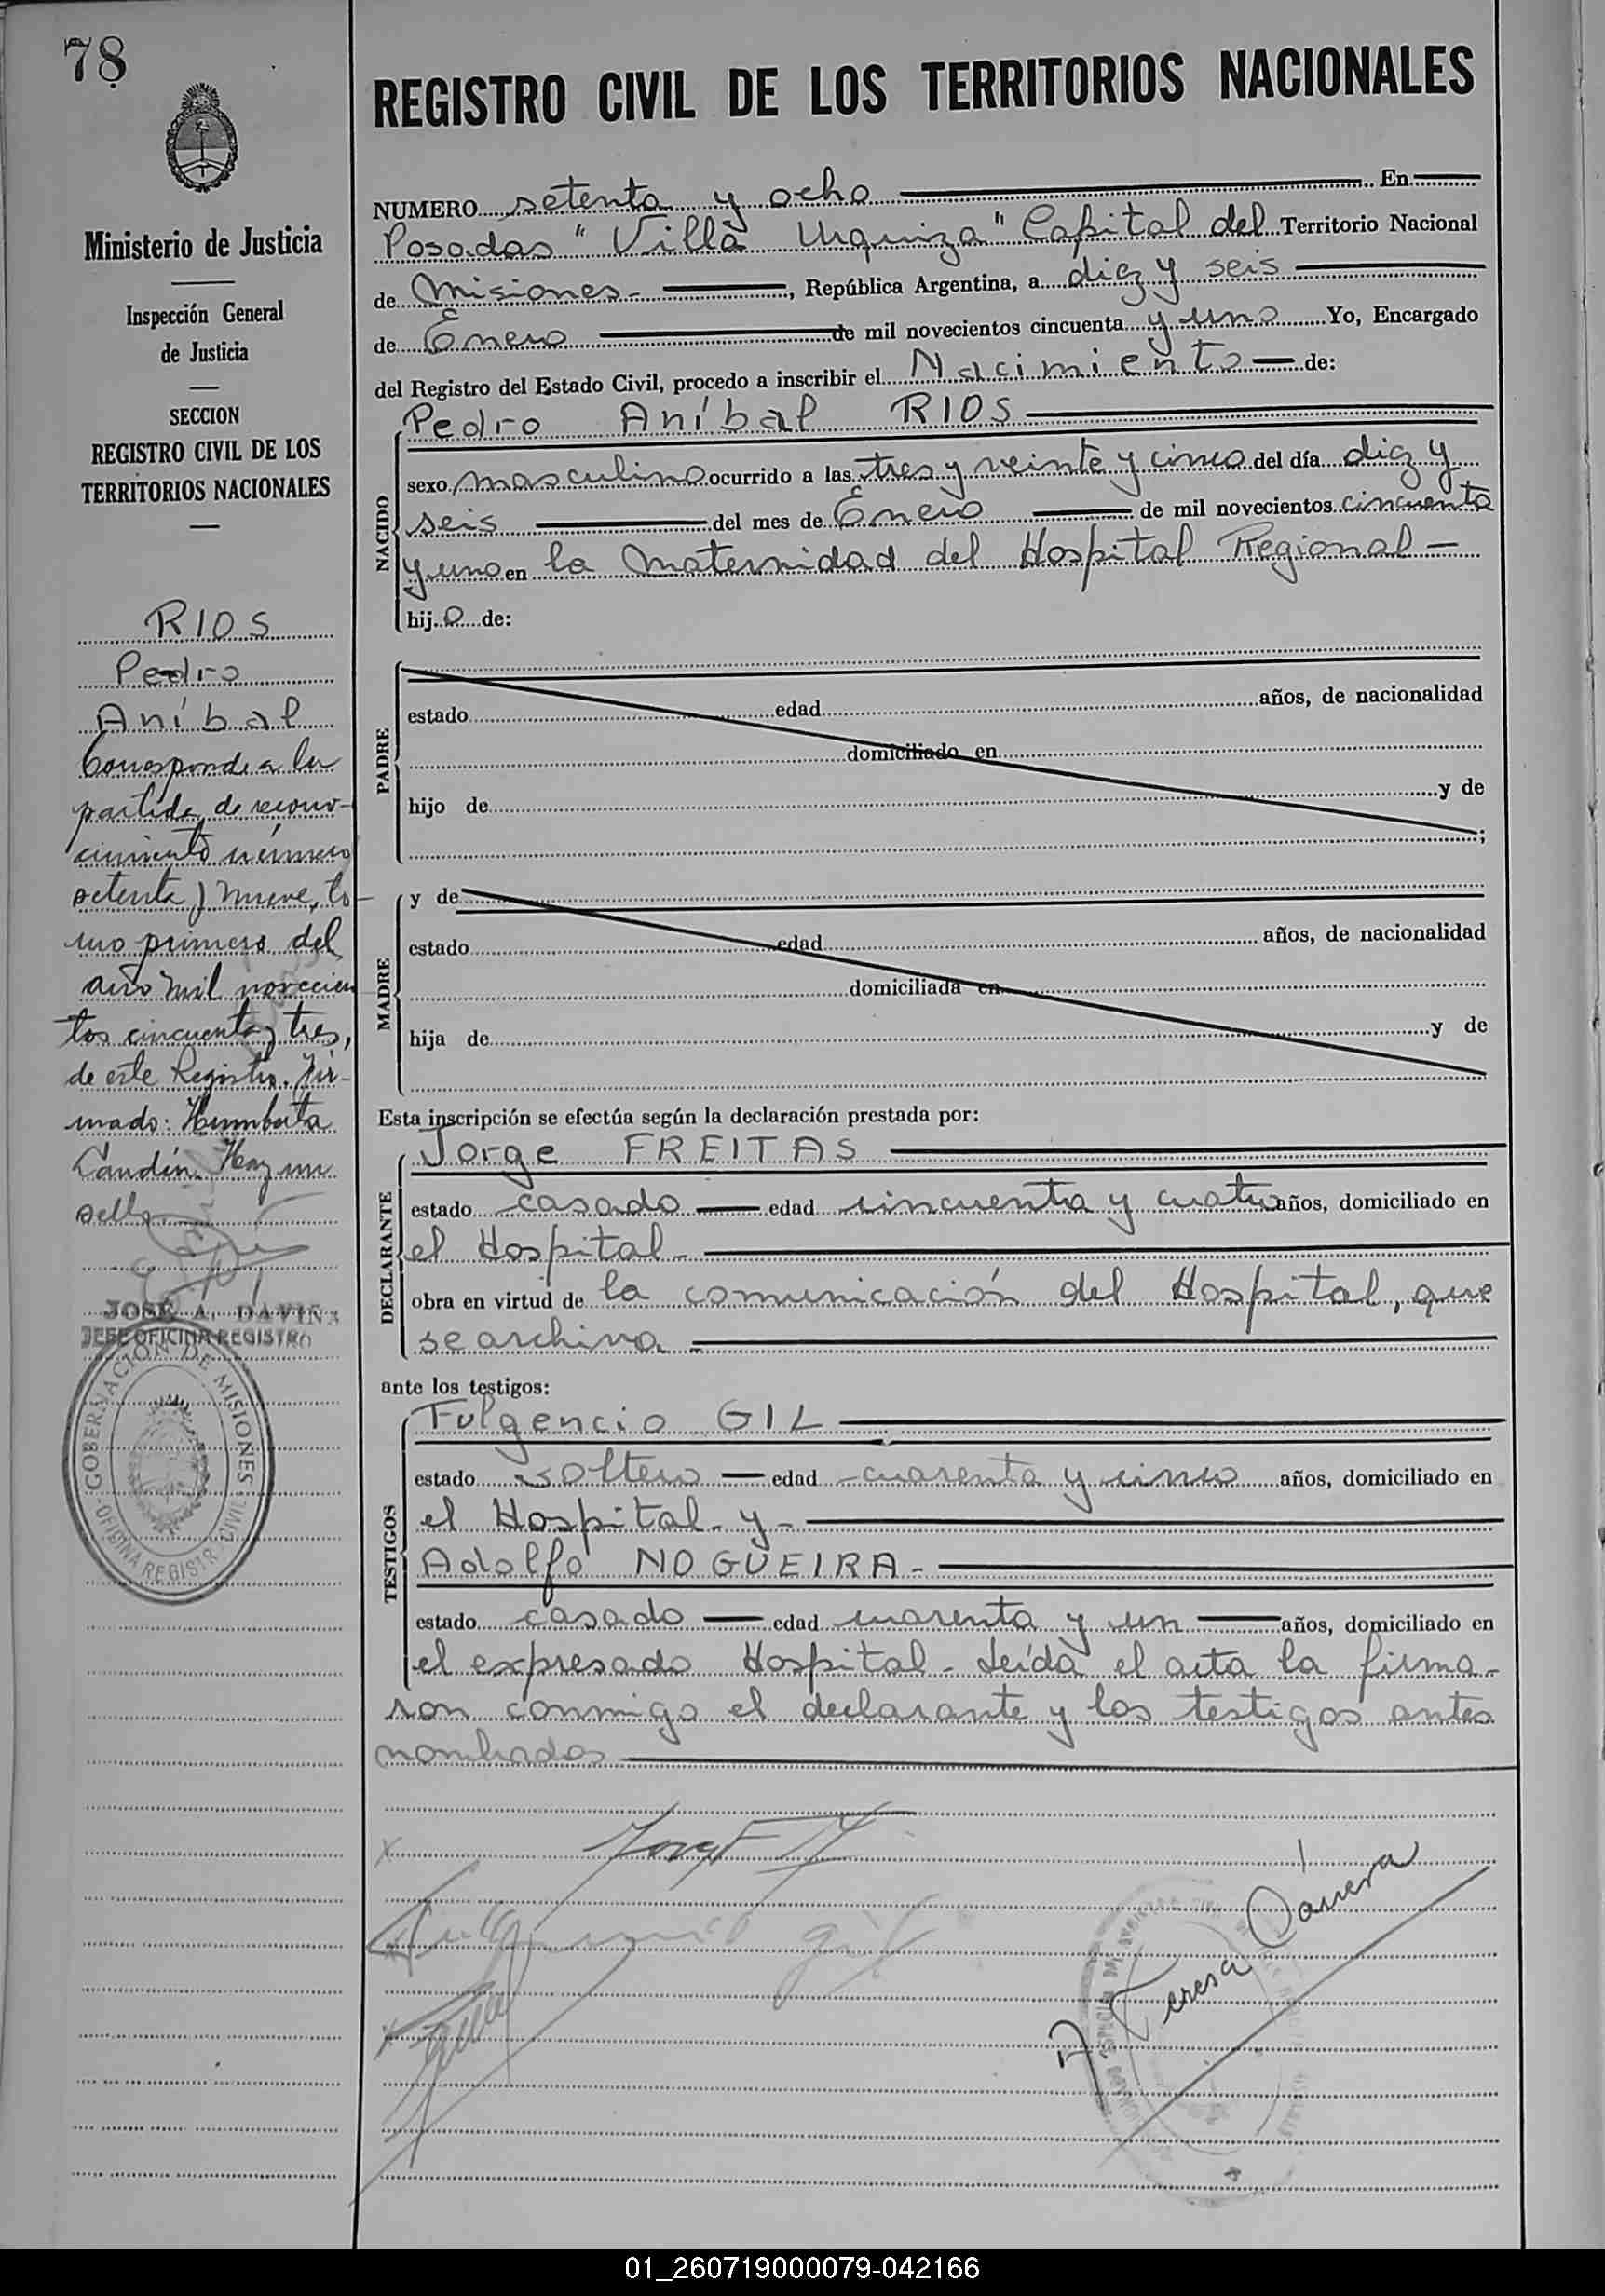 78
Ministerio de Justicia
Inspección General
de Justicia
SECCION
REGISTRO CIVIL DE LOS
TERRITORIOS NACIONALES
RIOS
Pedro
Aníbal
Corresponde a la
partida de recono-
cimiento número
setenta y nueve, to-
mo primero del
año mil novecien
tos cincuenta y tres,
de este Registro. Fir-
mado: Humberto
Landín. Hay un
sello.
JOSE A. DAVIÑA
JEFE OFICINA REGISTRO
GOBERNACION DE MISIONES
OFICINA REGISTRO CIVIL
REGISTRO CIVIL DE LOS TERRITORIOS NACIONALES
NUMERO setenta y ocho En
Posadas "Villa Urquiza" Capital del Territorio Nacional
de Misiones-, República Argentina, a diez y seis
de Enero de mil novecientos cincuenta y uno Yo, Encargado
del Registro del Estado Civil, procedo a inscribir el Nacimiento de:
NACIDO
Pedro Aníbal RIOS
sexo masculino ocurrido a las tres y veinte y cinco del día diez y
seis del mes de Enero de mil novecientos cincuenta
y uno en la Maternidad del Hospital Regional-
hijo de:
PADRE
estado edad años, de nacionalidad
domiciliado en
hijo de y de
;
MADRE
y de
estado edad años, de nacionalidad
domiciliada en
hija de y de
Esta inscripción se efectúa según la declaración prestada por:
DECLARANTE
Jorge FREITAS
estado casado edad cincuenta y cuatro años, domiciliado en
el Hospital-
obra en virtud de la comunicación del Hospital, que
se archiva-
ante los testigos:
TESTIGOS
Fulgencio GIL
estado soltero edad cuarenta y cinco años, domiciliado en
el Hospital- y-
Adolfo NOGUEIRA-
estado casado edad cuarenta y un años, domiciliado en
el expresado Hospital- Leída el acta la firma-
ron conmigo el declarante y los testigos antes
nombrados
Fulgencio Gil
A Teresa
01_260719000079-042166